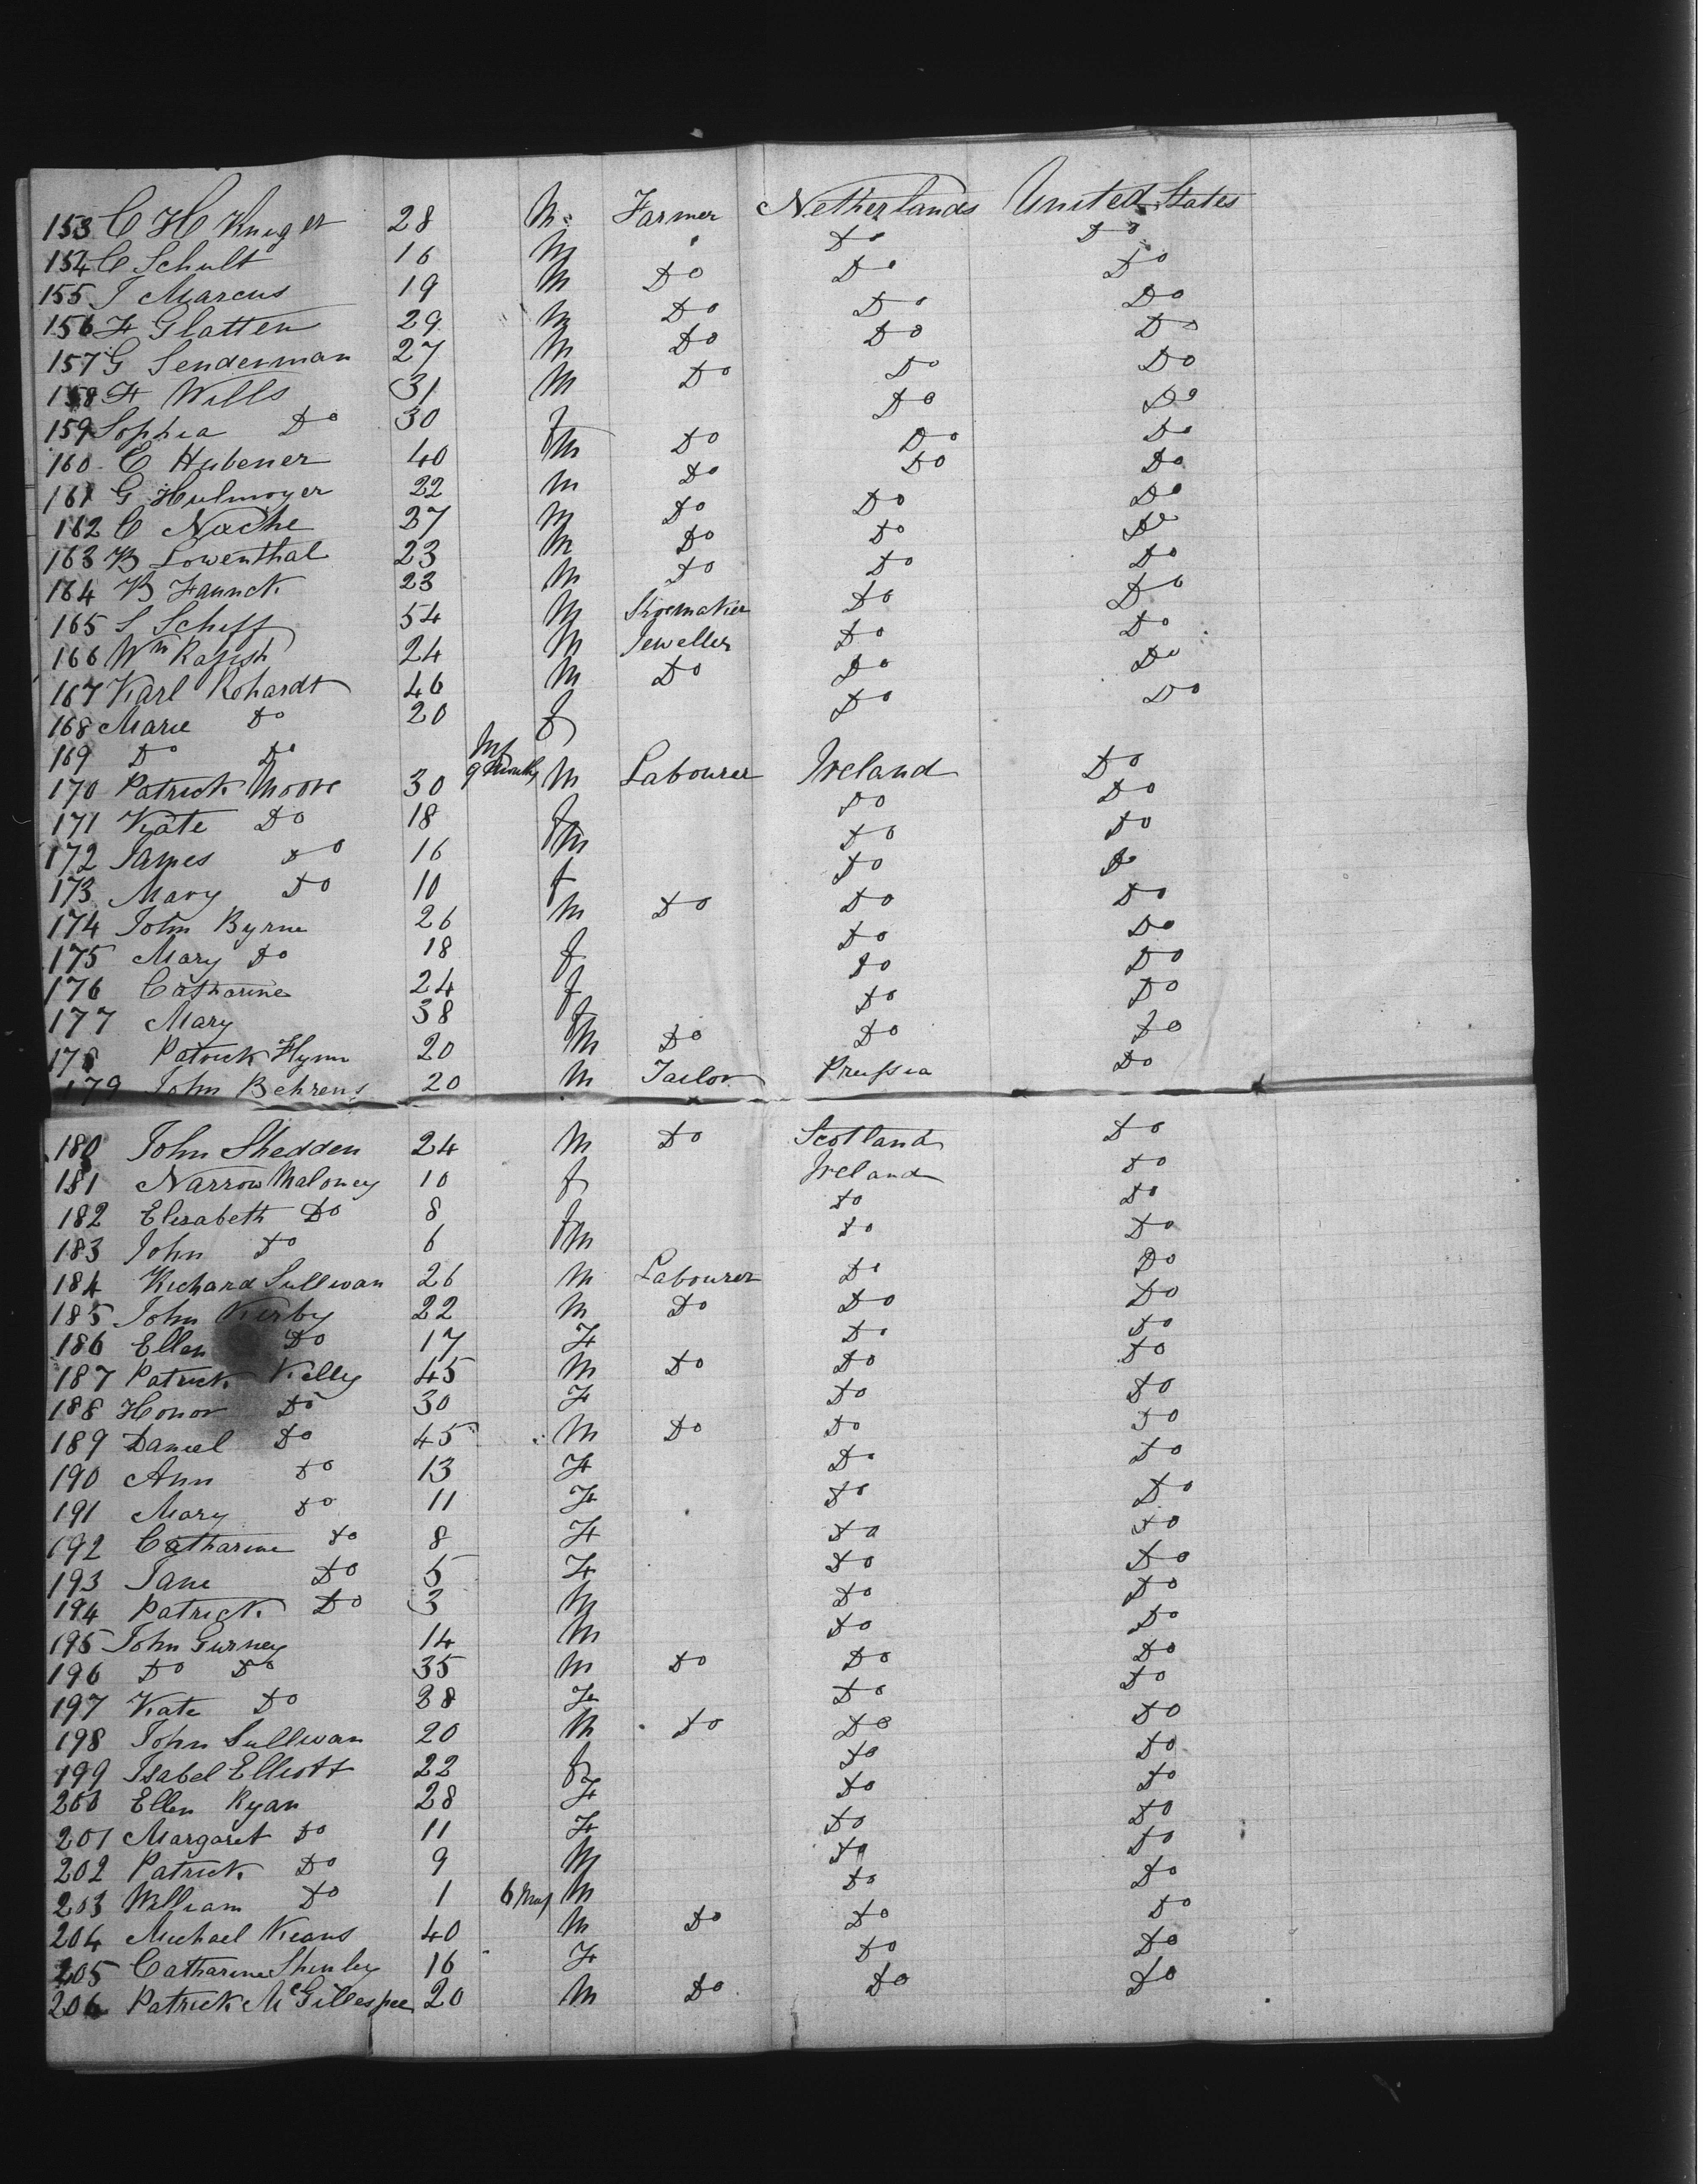 153 C H Kruger 28 M. Farmer Netherlands United States
154 C Schult 16 M " Do Do
155 J Marcus 19 M Do Do Do
156 F Glatten 29 M Do Do Do
157 G Senderman 27 M Do Do Do
158 F Wills 31 M Do Do Do
159 Sophia Do 30 f Do Do
160 C Hubener 40 M Do Do Do
161 G Hulmoyer 22 M Do Do Do
162 C Nache 37 M Do Do Do
163 B Lowenthal 23 M Do Do Do
164 B Faunck 23 M Do Do Do
165 S Scheff 54 M Shoemaker Do Do
166 Wm 24 M Jeweller Do Do
167 Karl Rohardt 46 M Do Do Do
168 Marie Do 20 f Do Do
169 Do Do Inf 9 Months
170 Patrick Moore 30 M Labourer Ireland Do
171 Kate Do 18 f Do Do
172 James Do 16 M Do Do
173 Mary Do 10 f Do Do
174 John Byrne 26 M Do Do Do
175 Mary Do 18 f Do Do
176 Catharine 24 f Do Do
177 Mary 38 f Do Do
178 Patrick Flynn 20 M Do Do Do
179 John Behrens 20 M Tailor Prussia Do
180 John Shedden 24 M Do Scotland Do
181 Narrow Maloney 10 f Ireland Do
182 Elisabeth Do 8 f Do Do
183 John Do 6 M Do Do
184 Richard Sullivan 26 M Labourer Do Do
185 John Kirby 22 M Do Do Do
186 Ellen Do 17 F Do Do
187 Patrick Kelly 45 M Do Do Do
188 Honor Do 30 F Do Do
189 Daniel Do 45 M Do Do Do
190 Ann Do 13 F Do Do
191 Mary Do 11 F Do Do
192 Catharine Do 8 F Do Do
193 Jane Do 5 F Do Do
194 Patrick Do 3 M Do Do
195 John Gurney 14 M Do Do
196 Do Do 35 M Do Do Do
197 Kate Do 28 F Do Do
198 John Sullivan 20 M Do Do Do
199 Isabel Elliott 22 f Do Do
200 Ellen Ryan 28 F Do Do
201 Margaret Do 11 F Do Do
202 Patrick Do 9 M Do Do
203 William Do 1 6 Mos M Do Do
204 Michael Keans 40 M Do Do Do
205 Catharine Shinley 16 F Do Do
206 Patrick McGillespee 20 M Do Do Do